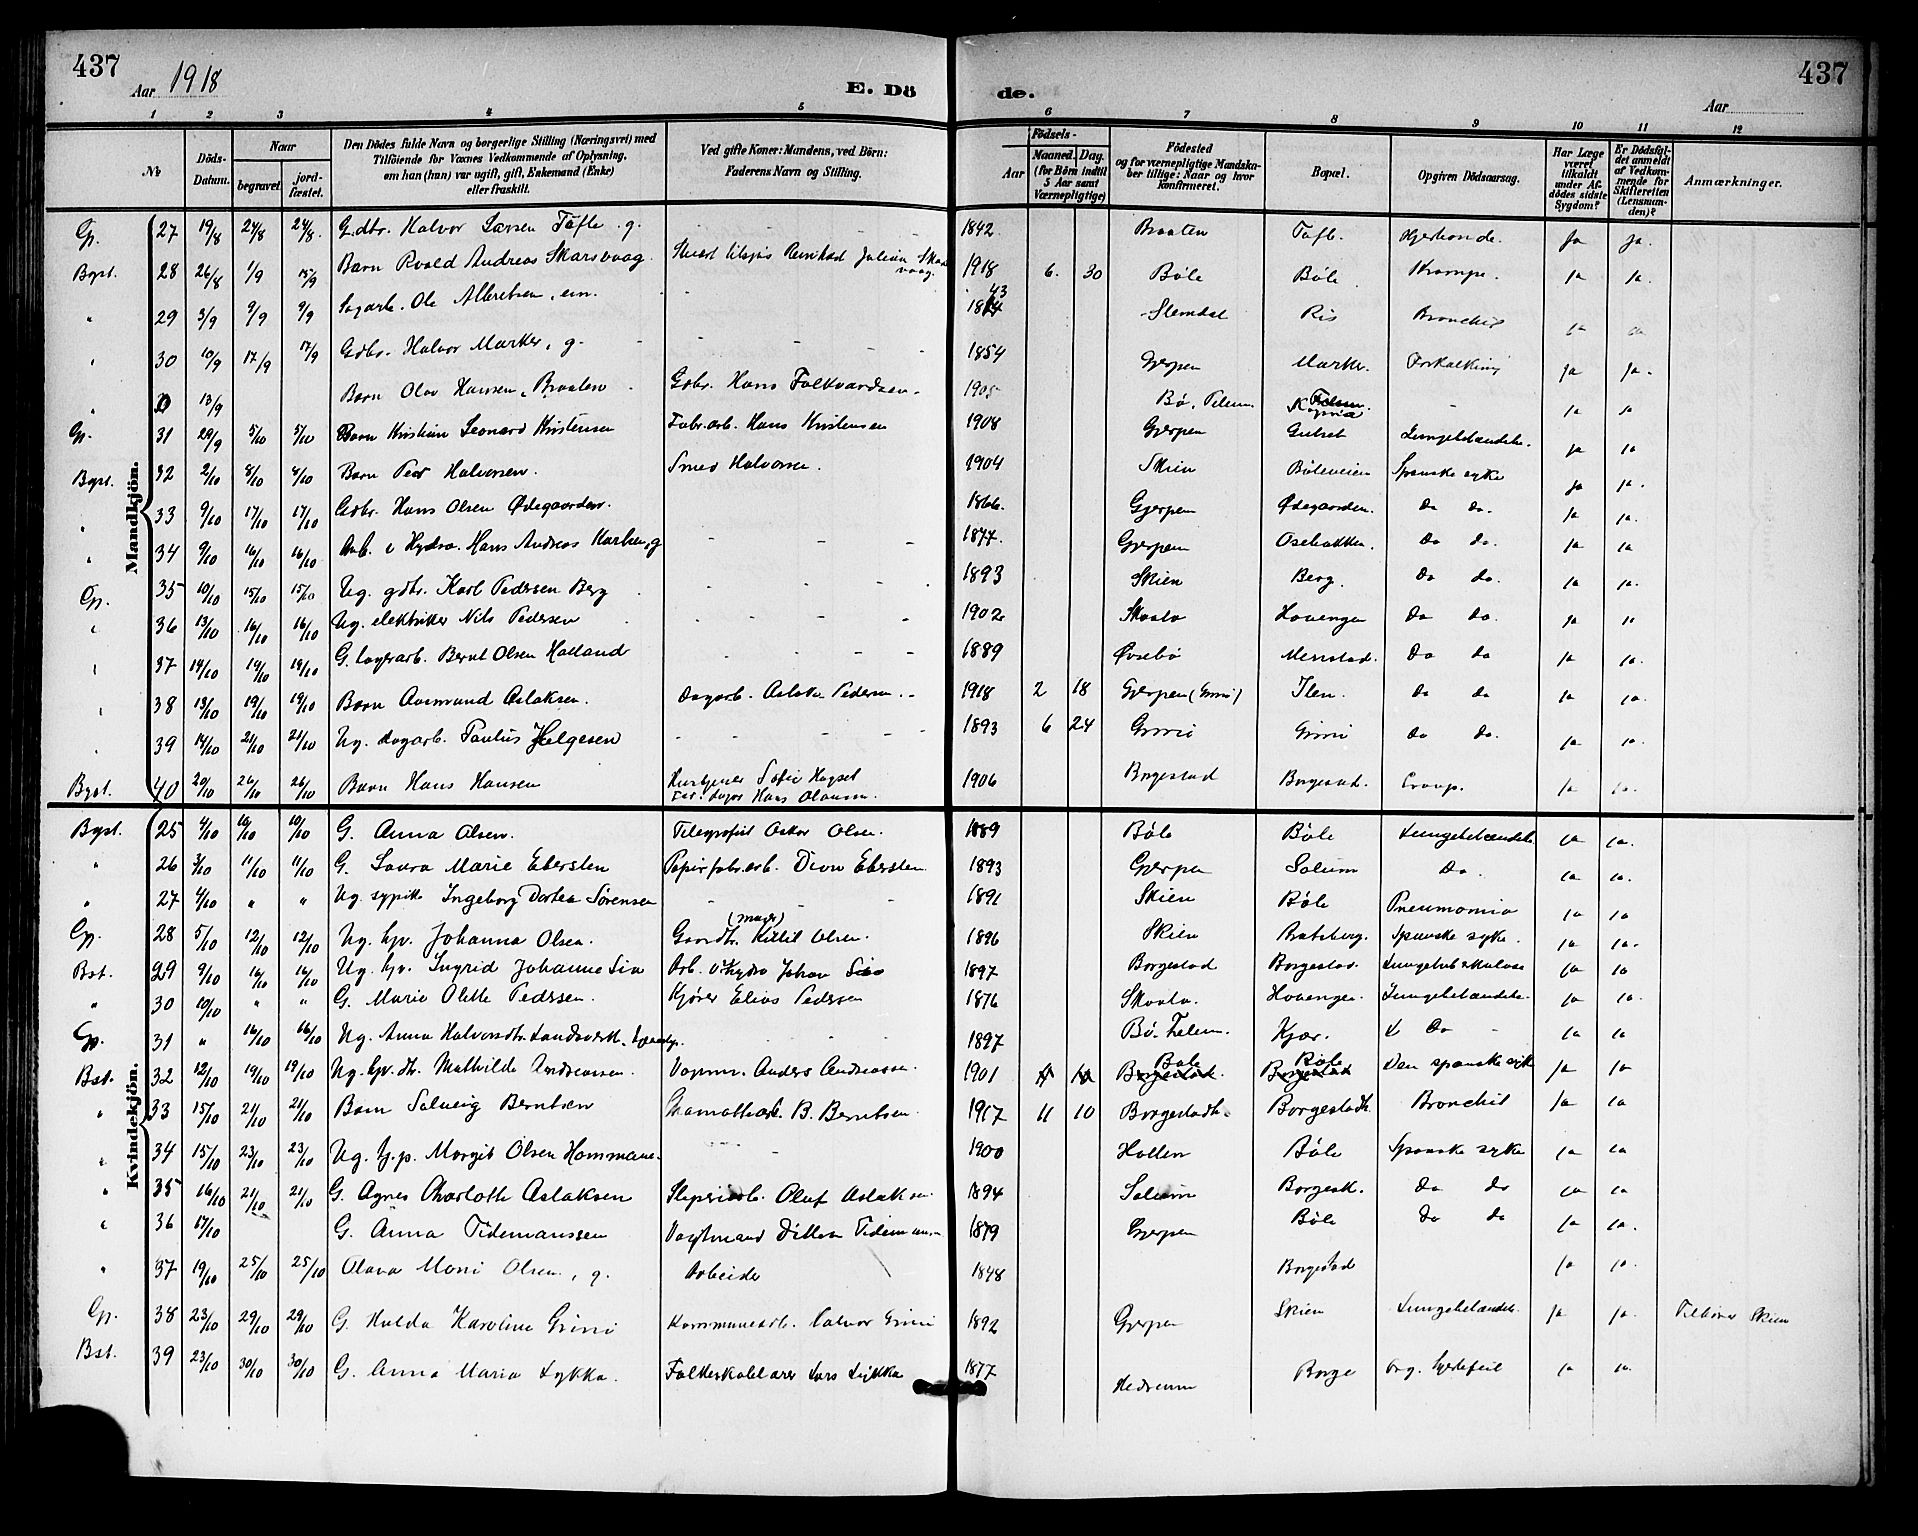 437
Aar 1918
E. Dö
de.
437
Aar
1 2 3 4 5 6 7 8 9 10 11 12
№
Döds-Datum.
Naar
begravet.
jord-fæstet.
Den Dödes fulde Navn og borgerlige Stilling (Næringsvei) med Tilföiende for Voxnes Vedkommende af Oplysning, om han (hun) var ugift, gift, Enkemand (Enke) eller fraskilt.
Ved gifte Koner: Mandens, ved Börn: Faderens Navn og Stilling.
Födsels-
Aar
Maaned.
Dag.
(for Börn indtil 5 Aar samt Værnepligtige)
Födested og for værnepligtige Mandskaber tillige: Naar og hvor konfirmeret.
Bopæl.
Opgiven Dödsaarsag.
Har Læge været tilkaldt under Afdödes sidste Sygdom?
Er Dödsfaldet anmeldt af Vedkommende for Skifteretten (Lensmanden)?
Anmærkninger.
Mandkjön.
Gp. 27 19/8 24/8 24/8 Gdbr. Halvor Larsen Tufte. g. - - - 1842 Braaten Tufte. ja ja.
Bgst. 28 26/8 1/9 15/9 Barn Roald Andreas Skarsvaag. Julian 1918 6. 30 Bøle Bøle Krampe. ja ja.
" 29 3/9 9/9 9/9 Sagarb. Ole Albretsen, em. - 43 Stemdal Ris Bronchit ja ja
" 30 10/9 17/9 17/9 Gdbr. Halvor Marker, g. - - - 1854 Gjerpen Marker. Forkalkning ja ja.
" 13/9 Barn Olav Hansen Braaten Gdbr. Hans Folkvardsen. 1905 Bø, Telem. - ja ja
Gp. 31 29/9 5/10 5/10 Barn Kristian Leonard Kristensen Fabr.arb. Hans Kristensen 1908 Gjerpen Gulset Lungebetændelse. ja ja
Bgst. 32 2/10 8/10 8/10 Barn Peder Halvorsen. Smed Halvorsen. 1904 Skien Bøleveien Spanske syke ja ja.
" 33 9/10 17/10 17/10 Gdbr. Hans Olsen Ødegaarden. 1866. Gjerpen Ødegaarden. Do do. ja ja.
" 34 9/10 16/10 16/10 Arb. v Hydro. Hans Andreas Karlsen, g - - - 1877. Gjerpen Osebakken. Do do. ja ja
Gp. 35 10/10 15/10 15/10 Ug. gdbr. Karl Pedersen Berg - - - 1893 Skien Berg. Do do. ja ja.
" 36 13/10 16/10 16/10 Ug. elektriker Nils Pedersen - - - 1902 Skotv Hovenga Do do. ja ja
" 37 14/10 19/10 19/10 G. lagerarb. Bernt Olsen Hatland - - - 1889 Øvsebø Menstad. Do do ja ja.
" 38 13/10 19/10 19/10 Barn Aasmund Aslaksen. Dagarb. Aslak Pedersen. 1918 2 18 Gjerpen (Grini) Ilen. Do do ja ja.
" 39 14/10 21/10 21/10 Ug. dagarb. Paulus Helgesen - - - 1893 6 24 Grini Grini Do do. ja ja.
Bgst. 40 20/10 26/10 26/10 Barn Hans Hansen Sofie Høgset Hans Olausen. 1906 Borgestad Borgestad. Croup. ja ja.
Kvindekjön.
Bgst. 25 4/10 10/10 10/10 G. Anna Olsen. Telegrafist Oskar Olsen. 1889 Bøle Bøle Lungebetændelse ja ja.
" 26 3/10 11/10 11/10 G. Laura Marie Ebersten Papirfabr.arb. Ebersten 1893 Gjerpen Solum Do. ja ja.
" 27 4/10 " " Ug. sypike Ingeborg Dortea Sørensen - - - 1891 Skien Bøle Pneumonia ja ja
Gp. 28 5/10 12/10 12/10 Ug. hp. Johanna Olsen. Kittil Olsen. 1896 Skien Bratsberg. Spanske syke. ja ja.
Bst. 29 9/10 16/10 16/10 Ug. hp. Ingrid Johanne Lia Arb. v Hydro Johan Lia 1897 Borgestad Borgestad. Lungetuberkulose ja ja
" 30 10/10 " " G. Marie Olette Pedersen. Kjører Elias Pedersen 1876 Skotv. Hovenga. Lungebetændelse. ja ja.
Gp. 31 " 16/10 16/10 Ug. Anna Halvorsdtr. Landsverk. - - - 1897 Bø. Telem. Kjær. Do - ja ja
Bst. 32 12/10 19/10 19/10 Ug. hp. dtr. Mathilde Andreassen. Vognm. Anders Andreassen. 1901 Borgestad Bøle Borgestad Bøle Den spanske syke ja ja
" 33 15/10 21/10 21/10 Barn Solveig Berntsen B. Berntsen. 1917 11 10 Borgestadh. Borgestadh. Bronchit ja ja
" 34 15/10 23/10 23/10 Ug. t.p. Margit Olsen Hammane. - 1900 Hollen Bøle Spanske syke ja ja
" 35 16/10 21/10 21/10 G. Agnes Charlotte Aslaksen Sliperiarb. Oluf Aslaksen. 1894 Solum Borgesk. Do do ja ja
" 36 17/10 G. Anna Tidemanssen Tidemanssen 1879 Gjerpen Bøle Do do ja ja.
" 37 19/10 25/10 25/10 Olava Marie Olsen, g. Arbeider 1848 Borgestad ja ja.
Gp. 38 23/10 29/10 29/10 G. Hulda Karoline Grini Kommunearb. Halvor Grini 1892 Gjerpen Skien Lungebetændelse. ja ja. Tilhører Skien
Bst. 39 23/10 30/10 30/10 G. Anna Maria Lykka. Folkeskolelærer Lars Lykka 1877 Hedrum Borge org. hjertefeil ja ja.